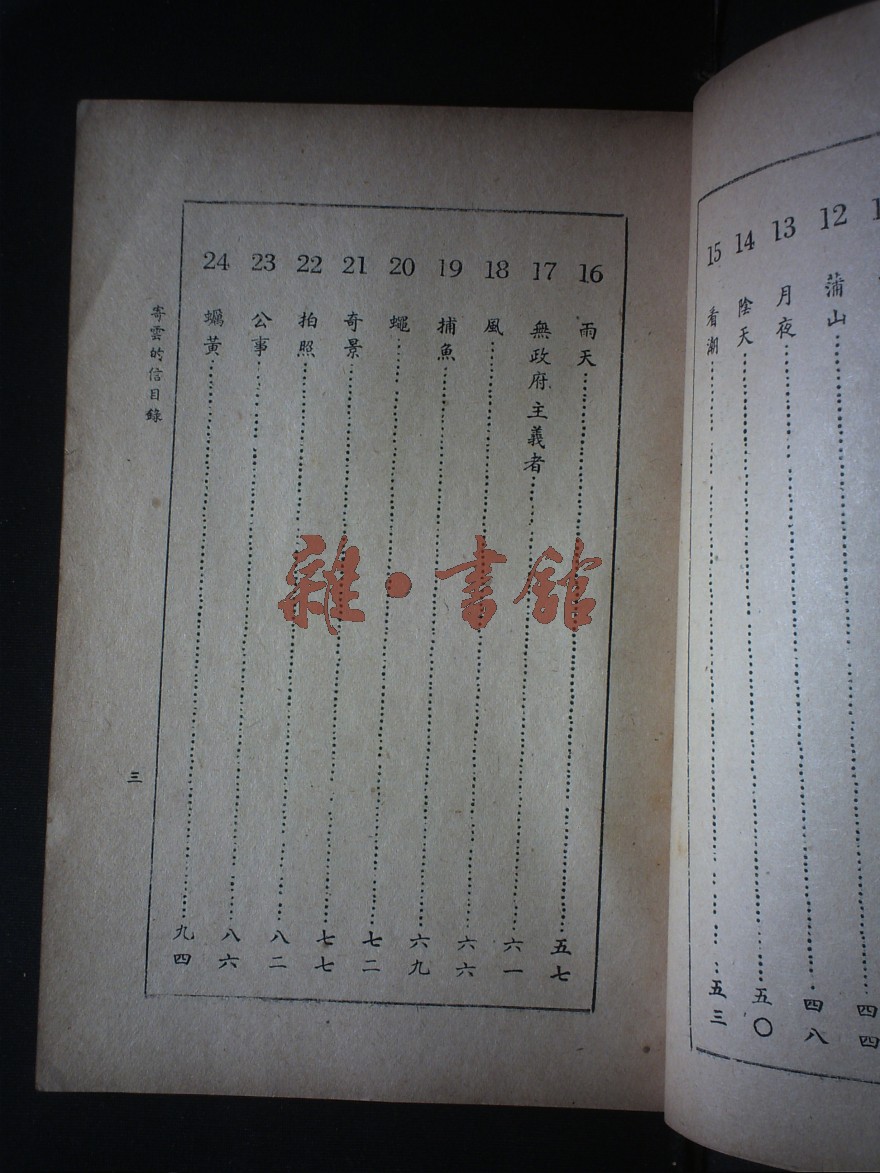 12 蒲山……四四
13 月夜……四八
14 陰天……五〇
15 看潮……五三
16 雨天……五七
17 無政府主義者……六一
18 風……六六
19 捕魚……六九
20 蠅……七二
21 奇景……七七
22 拍照……八二
23 公事……八六
24 蠣黃……九四
寄雲的信目錄
三
雜·書館